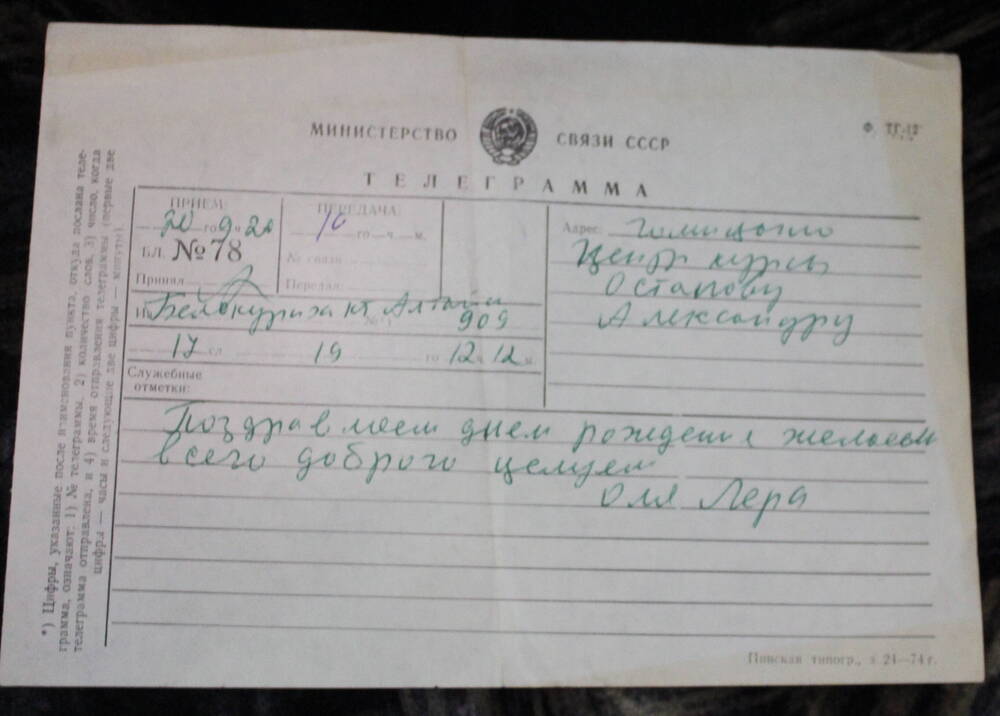 МИНИСТЕРСТВО СВЯЗИ СССР
Ф. ТГ-12
ТЕЛЕГРАММА
ПРИЕМ:
20 го 9 ч 20
БЛ. №78
Принял
ПЕРЕДАЧА:
го — ч — м.
№ связи
Передал:
Адрес:
Центр курсы
Остапову
Александру
Белокуриха
909
17 сл. 19 го 12 ч 12 м.
Служебные
отметки:
Поздравляем днем рождения желаем
всего доброго целуем
Оля Лера
*) Цифры, указанные после наименования пункта, откуда послана теле-
грамма, означают: 1) № телеграммы, 2) количество слов, 3) число, когда
телеграмма отправлена, и 4) время отправления телеграммы (первые две
цифры — часы и следующие две цифры — минуты).
Пинская типогр., з. 21—74 г.